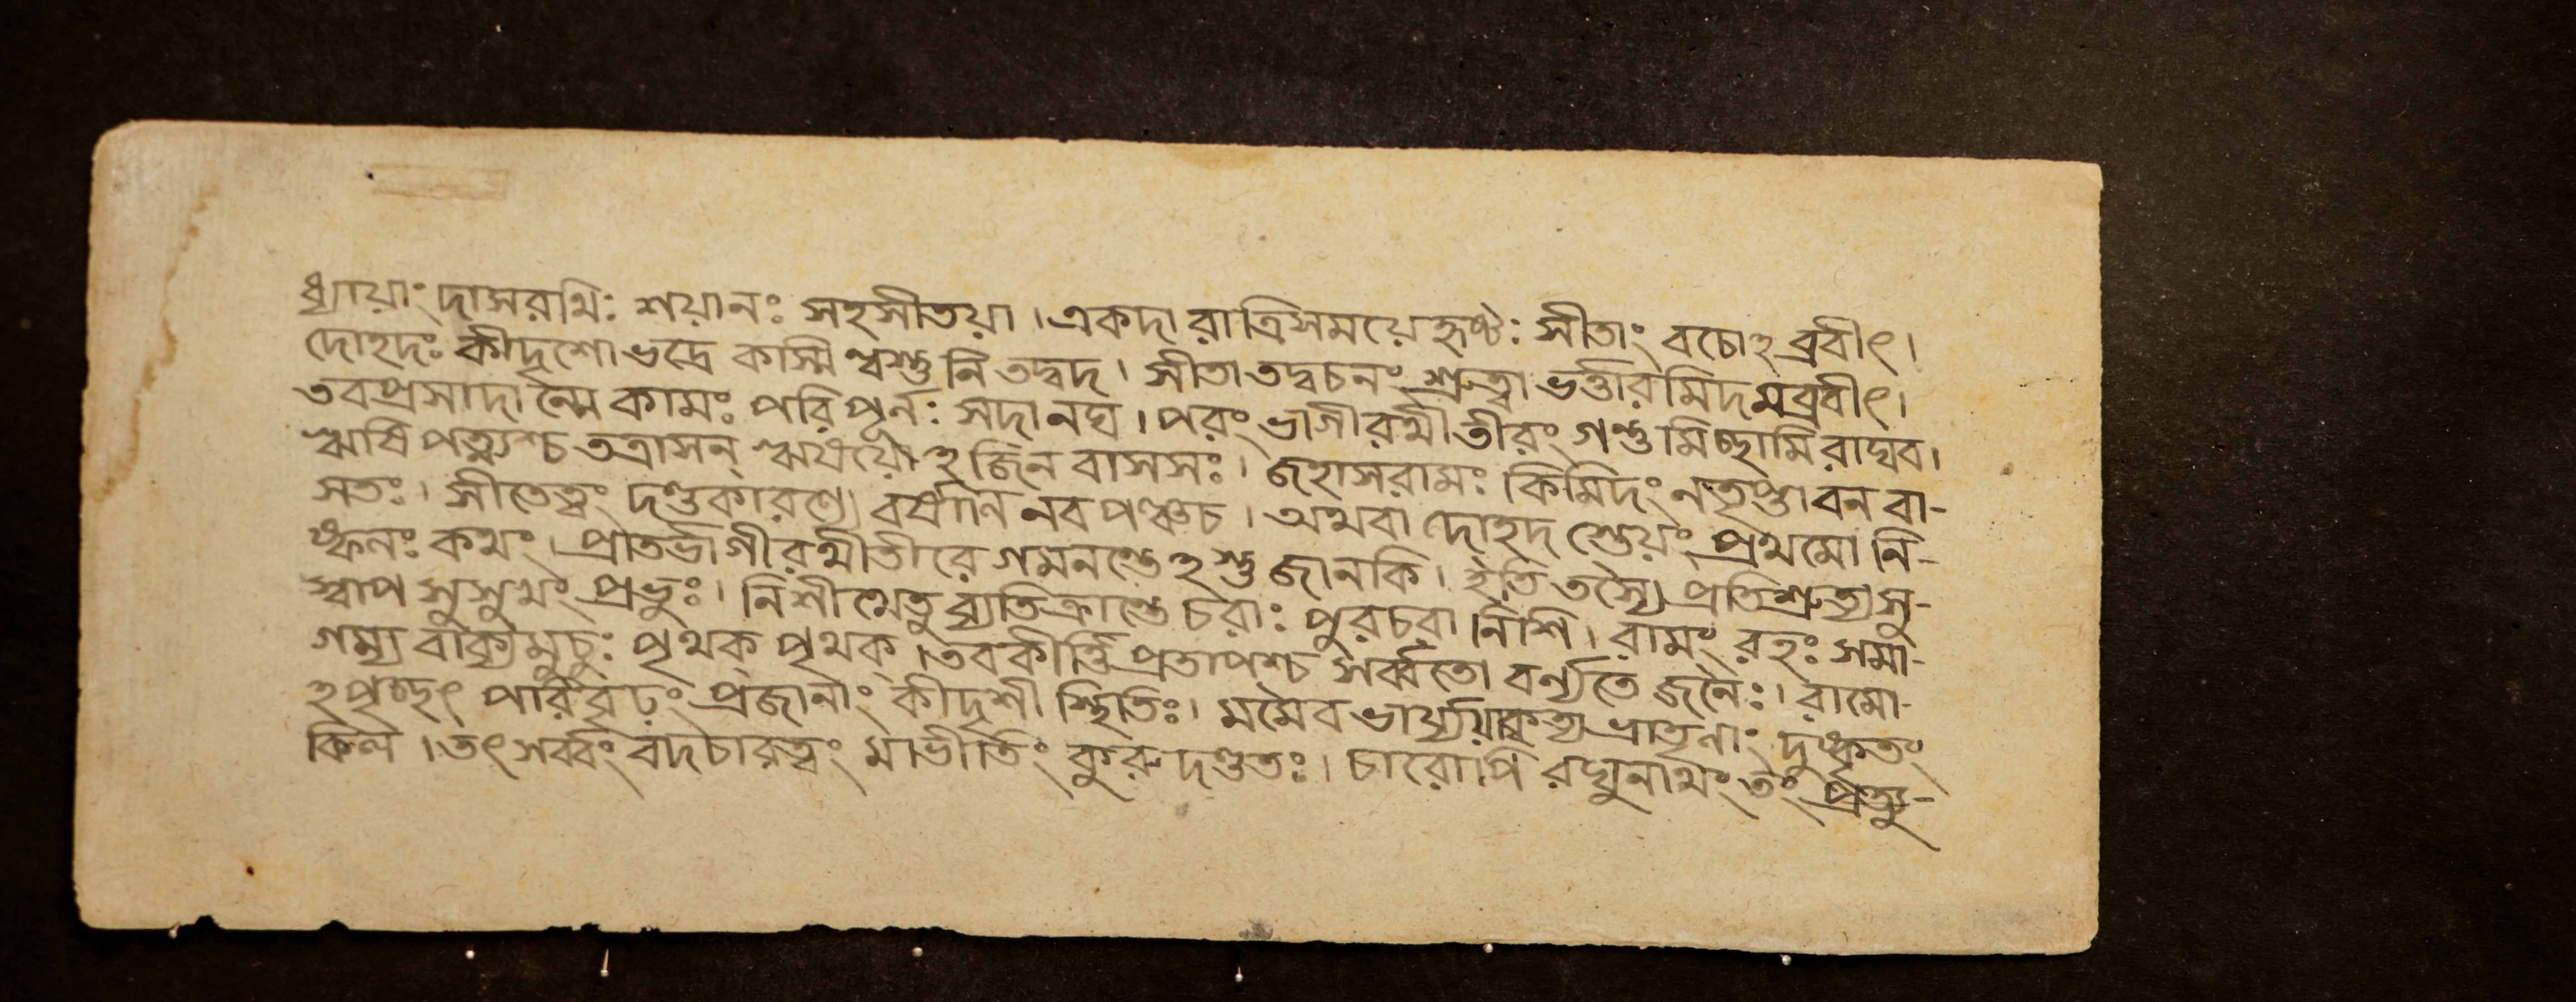 ধ্যায়াং দাসরথিঃ শয়ানঃ সহসীতয়া । একদা রাত্রিসময়ে হৃষ্টঃ সীতাং বচোঽব্রবীৎ ।
দোহদঃ কীদৃশো ভদ্রে কস্মিন্বস্তুনি তদ্বদ । সীতা তদ্বচনং শ্রুত্বা ভর্ত্তারমিদমব্রবীৎ ।
তবপ্রসাদান্মে কামঃ পরিপূর্নঃ সদানঘ । পরং ভাগীরথীতীরং গন্তুমিচ্ছামি রাঘব ।
ঋষিপত্ন্যশ্চ তত্রাসন্ ঋষয়োঽজিনবাসসঃ । জহাসরামঃ কিমিদং নতৃপ্তা বনবা-
সতঃ । সীতেত্বং দণ্ডকারণ্যে বর্ষানি নবপঞ্চচ । অথবা দোহদস্তেয়ং প্রথমো নি-
ষ্ফলঃ কথং । প্রাতর্ভাগীরথীতীরে গমনন্তেঽস্তু জানকি । ইতি তস্যৈ প্রতিশ্রুত্য সু-
স্বাপ সুসুখং প্রভুঃ । নিশীথেতু ব্যতিক্রান্তে চরাঃ পুরচরা নিশি । রামং রহঃ সমা-
গম্য বাক্যমুচুঃ পৃথক্ পৃথক্ । তবকীর্ত্তিপ্রতাপশ্চ সর্ব্বতো বর্ণ্যতে জনৈঃ । রামো-
ঽপৃচ্ছৎ পরিদৃঢ়ং প্রজানাং কীদৃশী স্থিতিঃ । মমৈব ভার্য্যয়াকৃত্য ভ্রাতৃনাং দুষ্কৃতং
কিল । তৎ সর্ব্বং বদচারত্বং মাভীতিং কুরু দণ্ডতঃ । চারোপি রঘুনাথং তং প্রত্যু-